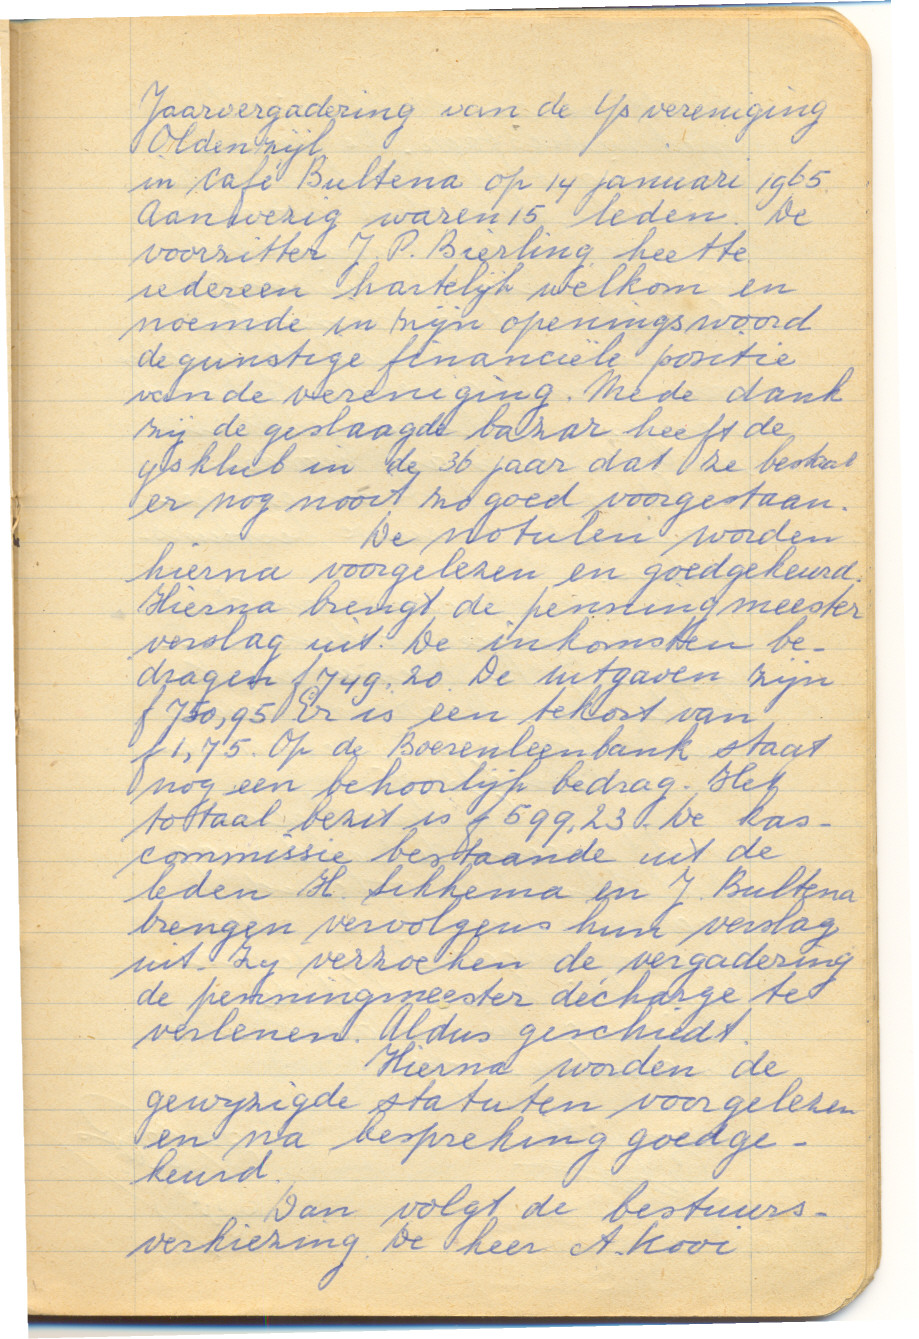 Jaarvergadering van de Ys vereniging
Oldenzijl
in café Bultena op 14 januari 1965.
Aanwezig waren 15 leden. De
voorzitter J. P. Bierling heette
iedereen hartelijk welkom en
noemde in zijn openingswoord
de gunstige financiële positie
van de vereniging. Mede dank
zij de geslaagde bazar heeft de
ysklub in de 36 jaar dat ze bestaat
er nog nooit zo goed voorgestaan.
De notulen worden
hierna voorgelezen en goedgekeurd.
Hierna brengt de penningmeester
verslag uit. De inkomsten be-
dragen f 749,20. De uitgaven zijn
f 750,95 Er is een tekort van
f 1,75. Op de Boerenleenbank staat
nog een behoorlijk bedrag. Het
totaal bezit is f 599,23. De kas-
commissie bestaande uit de
leden H. Sikkema en J. Bultena
brengen vervolgens hun verslag
uit. Zy verzoeken de vergadering
de penningmeester décharge te
verlenen. Aldus geschiedt.
Hierna worden de
gewyzigde statuten voorgelezen
en na bespreking goedge-
keurd.
Dan volgt de bestuurs-
verkiezing. De heer A. Kooi